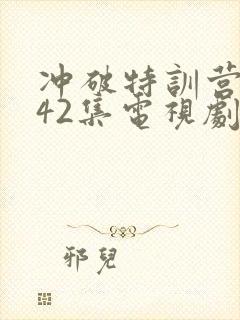 冲破特訓营
42集電視劇
邪兒